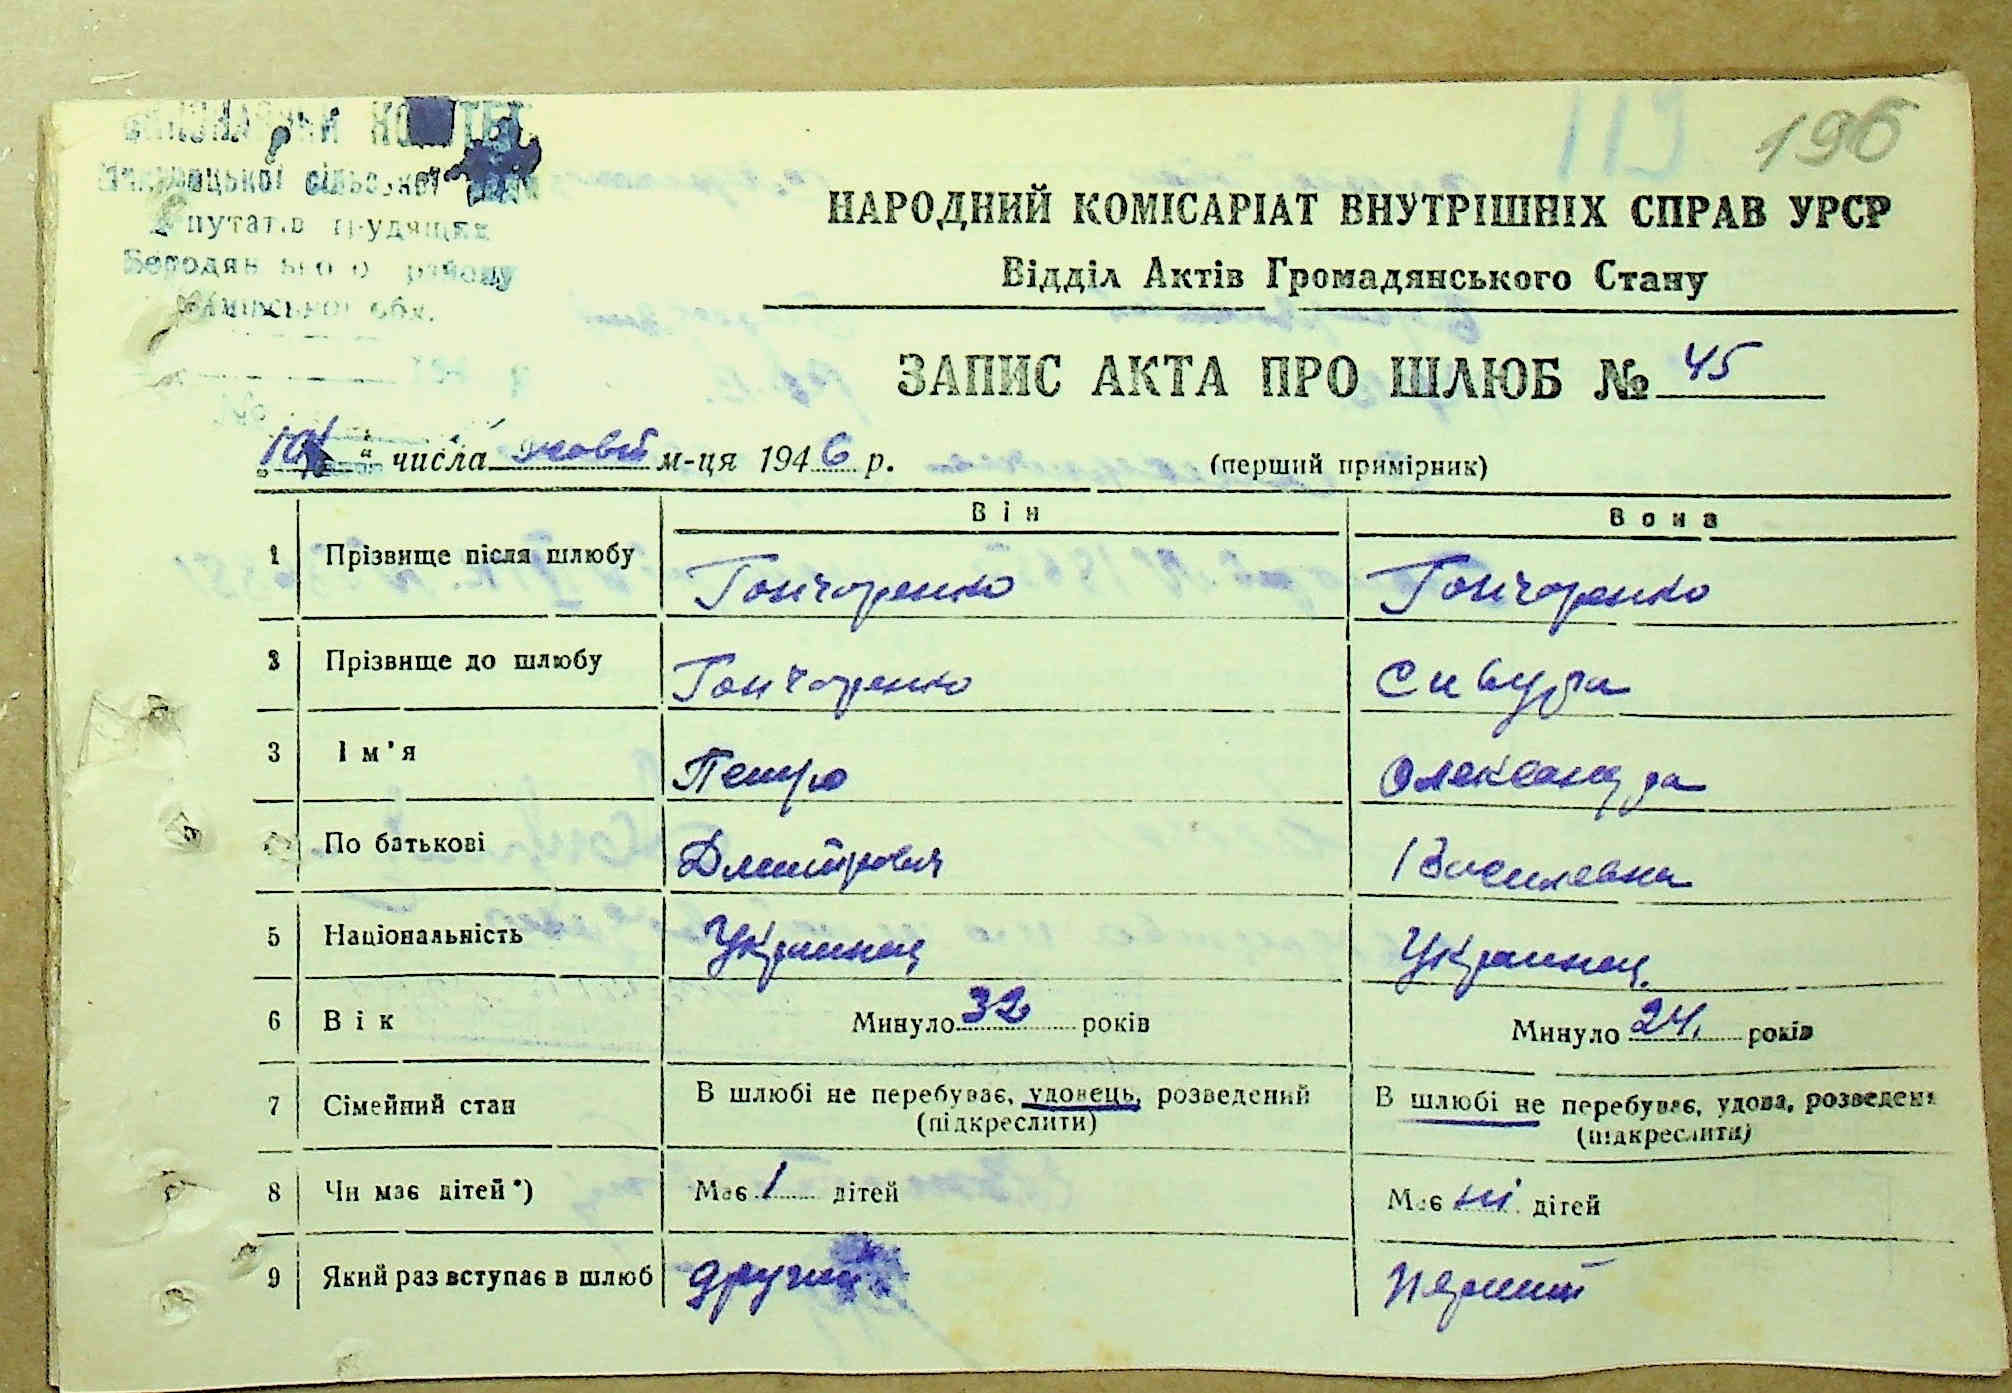 196
сільської
депутатів трудящих
Бородянського району
Київської обл.
НАРОДНИЙ КОМІСАРІАТ ВНУТРІШНІХ СПРАВ УРСР
Відділ Актів Громадянського Стану
ЗАПИС АКТА ПРО ШЛЮБ № 45
числа жовт м-ця 1946 р. (перший примірник)
Він Вона
1 Прізвище після шлюбу Гончаренко Гончаренко
2 Прізвище до шлюбу Гончаренко Сивура
3 Ім'я Петро Олександра
По батькові Дмитрович Василевна
5 Національність Украинец Украинец.
6 Вік Минуло 32 років Минуло 24. років
7 Сімейний стан В шлюбі не перебуває, удовець, розведений В шлюбі не перебуває, удова, розведена
(підкреслити) (підкреслити)
8 Чи має дітей*) Має 1 дітей Має ні дітей
9 Який раз вступає в шлюб другий перший